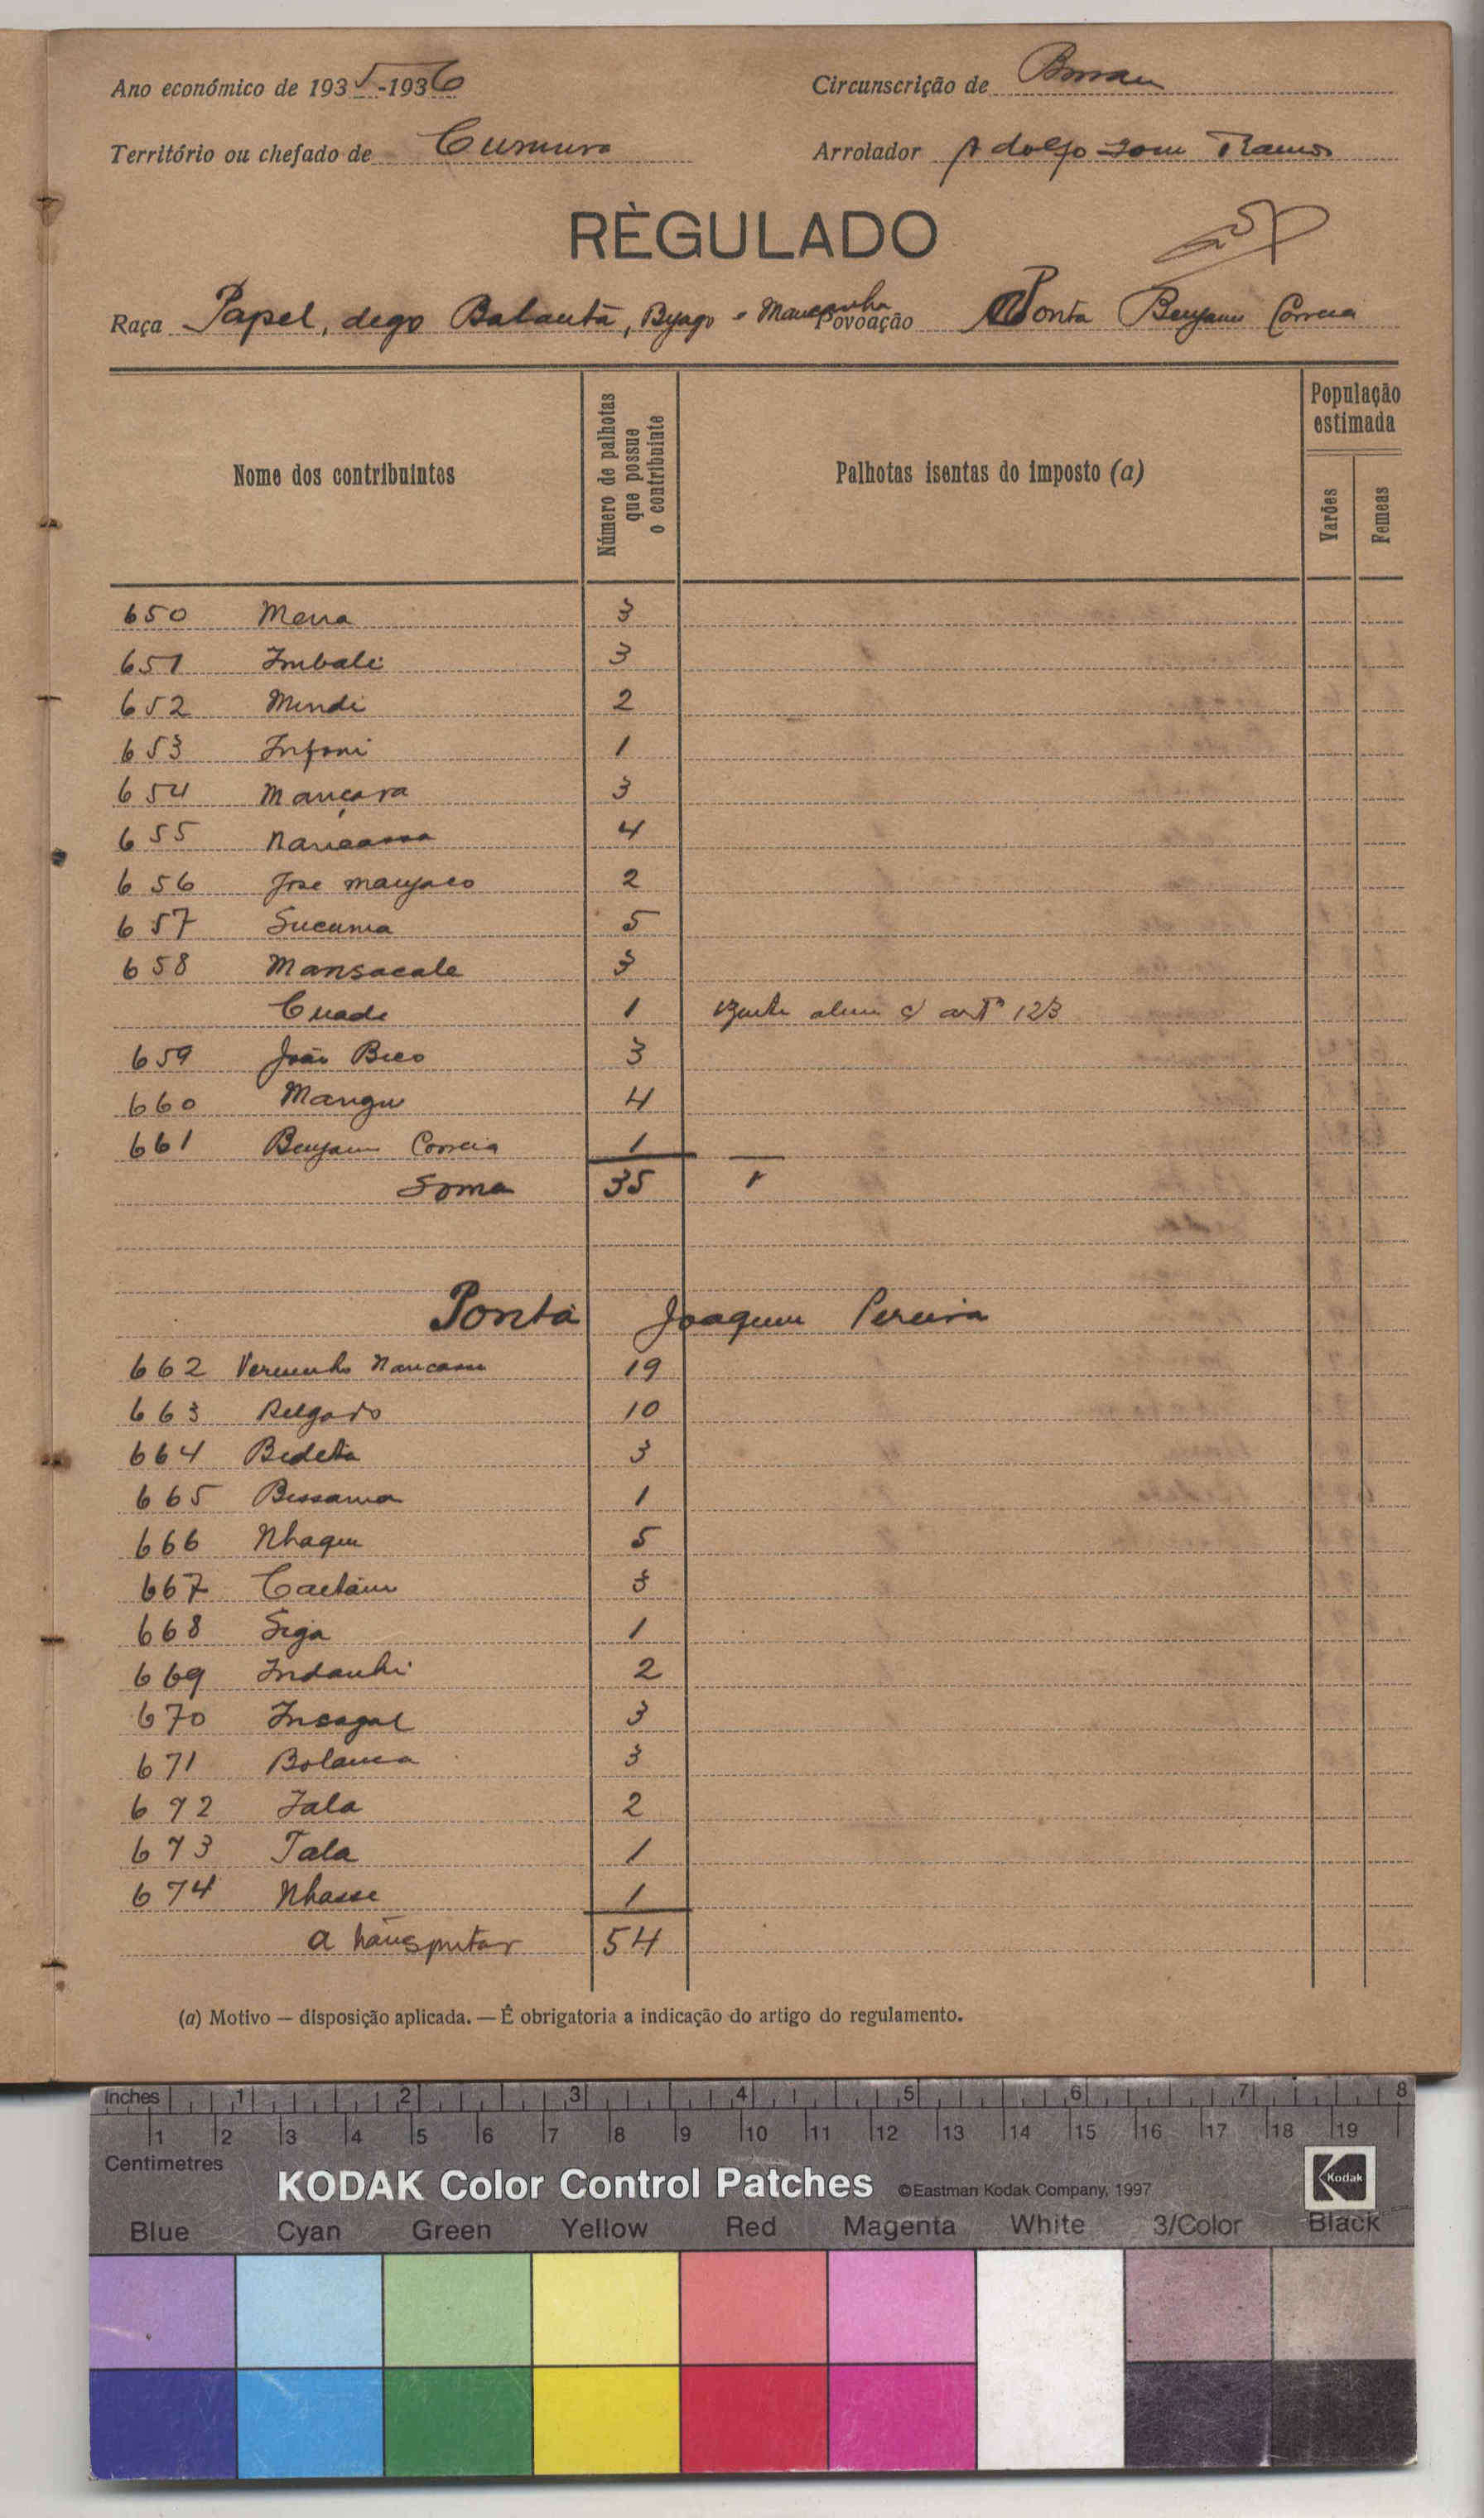 Ano económico de 1935-1936
Circunscrição de Bissau
Território ou chefado de Cumura
Arrolador Adolfo Ramos
RÈGULADO
Raça Papel, digo Balanta, Byago e Mancanha Povoação Ponta Benjamim Correia
Nome dos contribuintes
Número de palhotas que possue o contribuinte
Palhotas isentas do imposto (a)
População estimada
Varões
Femeas
650 Mena 3
651 Imbali 3
652 Mindi 2
653 Infoni 1
654 Mançara 3
655 Nancassa 4
656 José manjaco 2
657 Sucuma 5
658 Mansacale 3
Cuade 1 artº 123
659 João Bico 3
660 Mangu 4
661 Benjamim Correia 1
Soma 35 1
Ponta Joaquim Pereira
662 Nancassa 19
663 Delgado 10
664 Bedeta 3
665 Bissama 1
666 Nhaqui 5
667 Caetano 3
668 Siga 1
669 Indanhi 2
670 Insagal 3
671 Bolama 3
672 Jala 2
673 Tala 1
674 Nhasse 1
a transportar 54
(a) Motivo — disposição aplicada. — É obrigatoria a indicação do artigo do regulamento.
Inches 1 2 3 4 5 6 7 8
1 2 3 4 5 6 7 8 9 10 11 12 13 14 15 16 17 18 19
Centimetres
KODAK Color Control Patches ©Eastman Kodak Company, 1997 Kodak
Blue Cyan Green Yellow Red Magenta White 3/Color Black